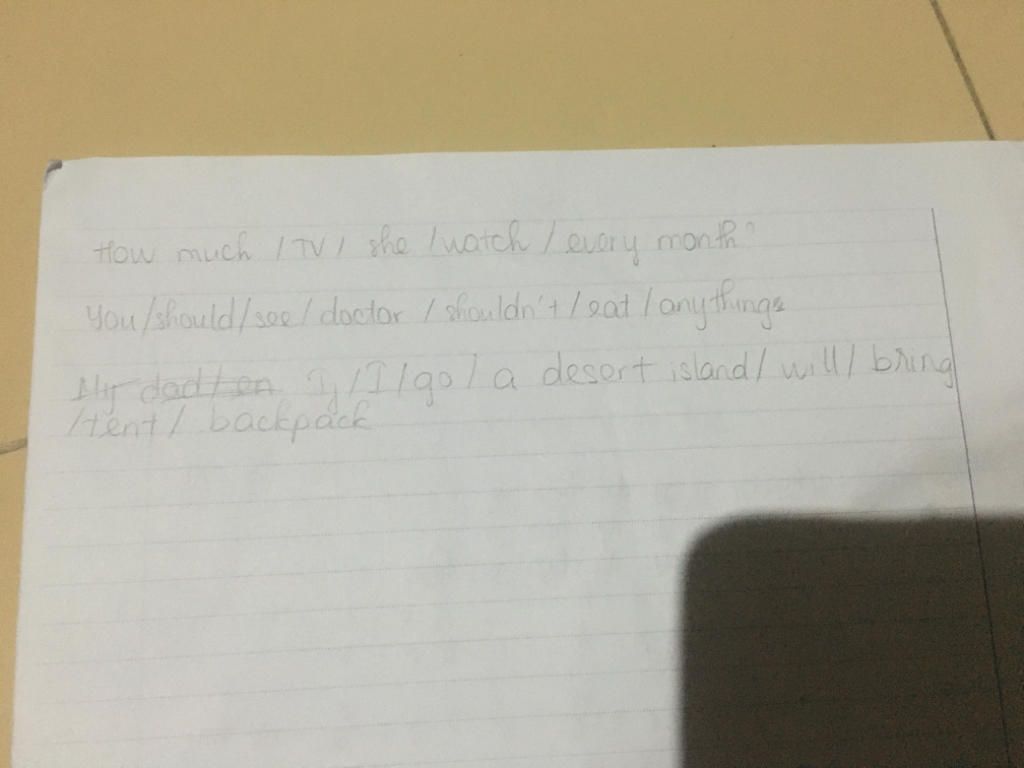 How much / TV / she / watch / every month?
You/should/see/doctor / shouldn't / eat / anythings
My dad/en If / I / go / a desert island / will / bring
/tent / backpack